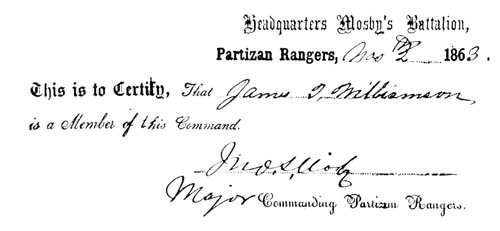 Headquarters Mosby's Battalion,
Partizan Rangers, Nov 2 1863.
This is to Certify, That James J. Williamson,
is a Member of this Command.
Jno. S. Mosby
Major Commanding Partizan Rangers.